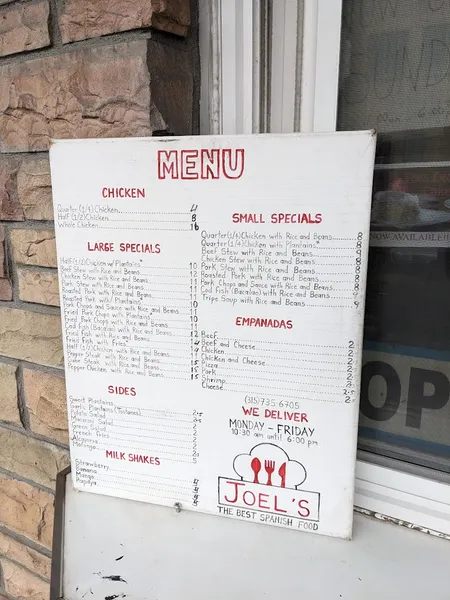 MENU
CHICKEN
Quarter (1/4) Chicken 4
Half (1/2) Chicken 8
Whole Chicken 16
LARGE SPECIALS
Half (1/2) Chicken w/ Plantains* 10
Beef Stew with Rice and Beans
Chicken Stew with Rice and Beans
Pork Stew with Rice and Beans
Roasted Pork with Rice and Beans
Roasted Pork w/ Plantains
Pork Chops and Sauce with Rice and Beans
Fried Pork Chops w/ Plantains
Fried Pork Chops with Rice and Beans
Cod Fish (Bacalao) with Rice and Beans
Fried Fish with Rice and Beans
Fried Fish with Fries
Half (1/2) Chicken with Rice and Beans
Pepper Steak with Rice and Beans
Steak with Rice and Beans
Pepper Chicken with Rice and Beans
SIDES
Sweet Plantains
Garlic Plantains (Tostones)
Potato Salad
Macaroni Salad
Green Salad
French Fries
MILK SHAKES
Strawberry
Banana
Mango
Papaya
SMALL SPECIALS
Quarter (1/4) Chicken with Rice and Beans 8
Quarter (1/4) Chicken with Plantains* 8
Beef Stew with Rice and Beans 9
Chicken Stew with Rice and Beans 8
Pork Stew with Rice and Beans 8
Roasted Pork with Rice and Beans 8
Pork Chops and Sauce with Rice and Beans 8
Cod Fish (Bacalao) with Rice and Beans 9
Tripe Soup with Rice and Beans 9
EMPANADAS
Beef 2
Beef and Cheese 2
Chicken 2
Chicken and Cheese 2
Pizza 2
Pork
Shrimp
Cheese
(315)735-6705
WE DELIVER
MONDAY - FRIDAY
10:30 am until 6:00 pm
JOEL'S
THE BEST SPANISH FOOD
NOW AVAILABLE
OP